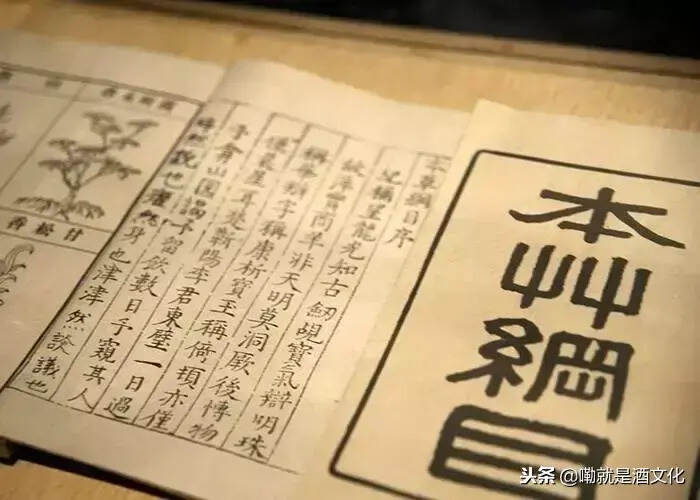 本艸綱目
本草綱目序
紀稱望龍光知古劒覘寶氣辯明珠
故萍實商羊非天明莫洞厥後博物
稱華辯字稱康析寶玉稱倚頓亦僅
僅晨星耳楚蘄陽李君東璧一日過
予弇山園謁予留飲數日予窺其人
睟然貌也癯然身也津津然談議也
甘松香
头条 @嘞就是酒文化